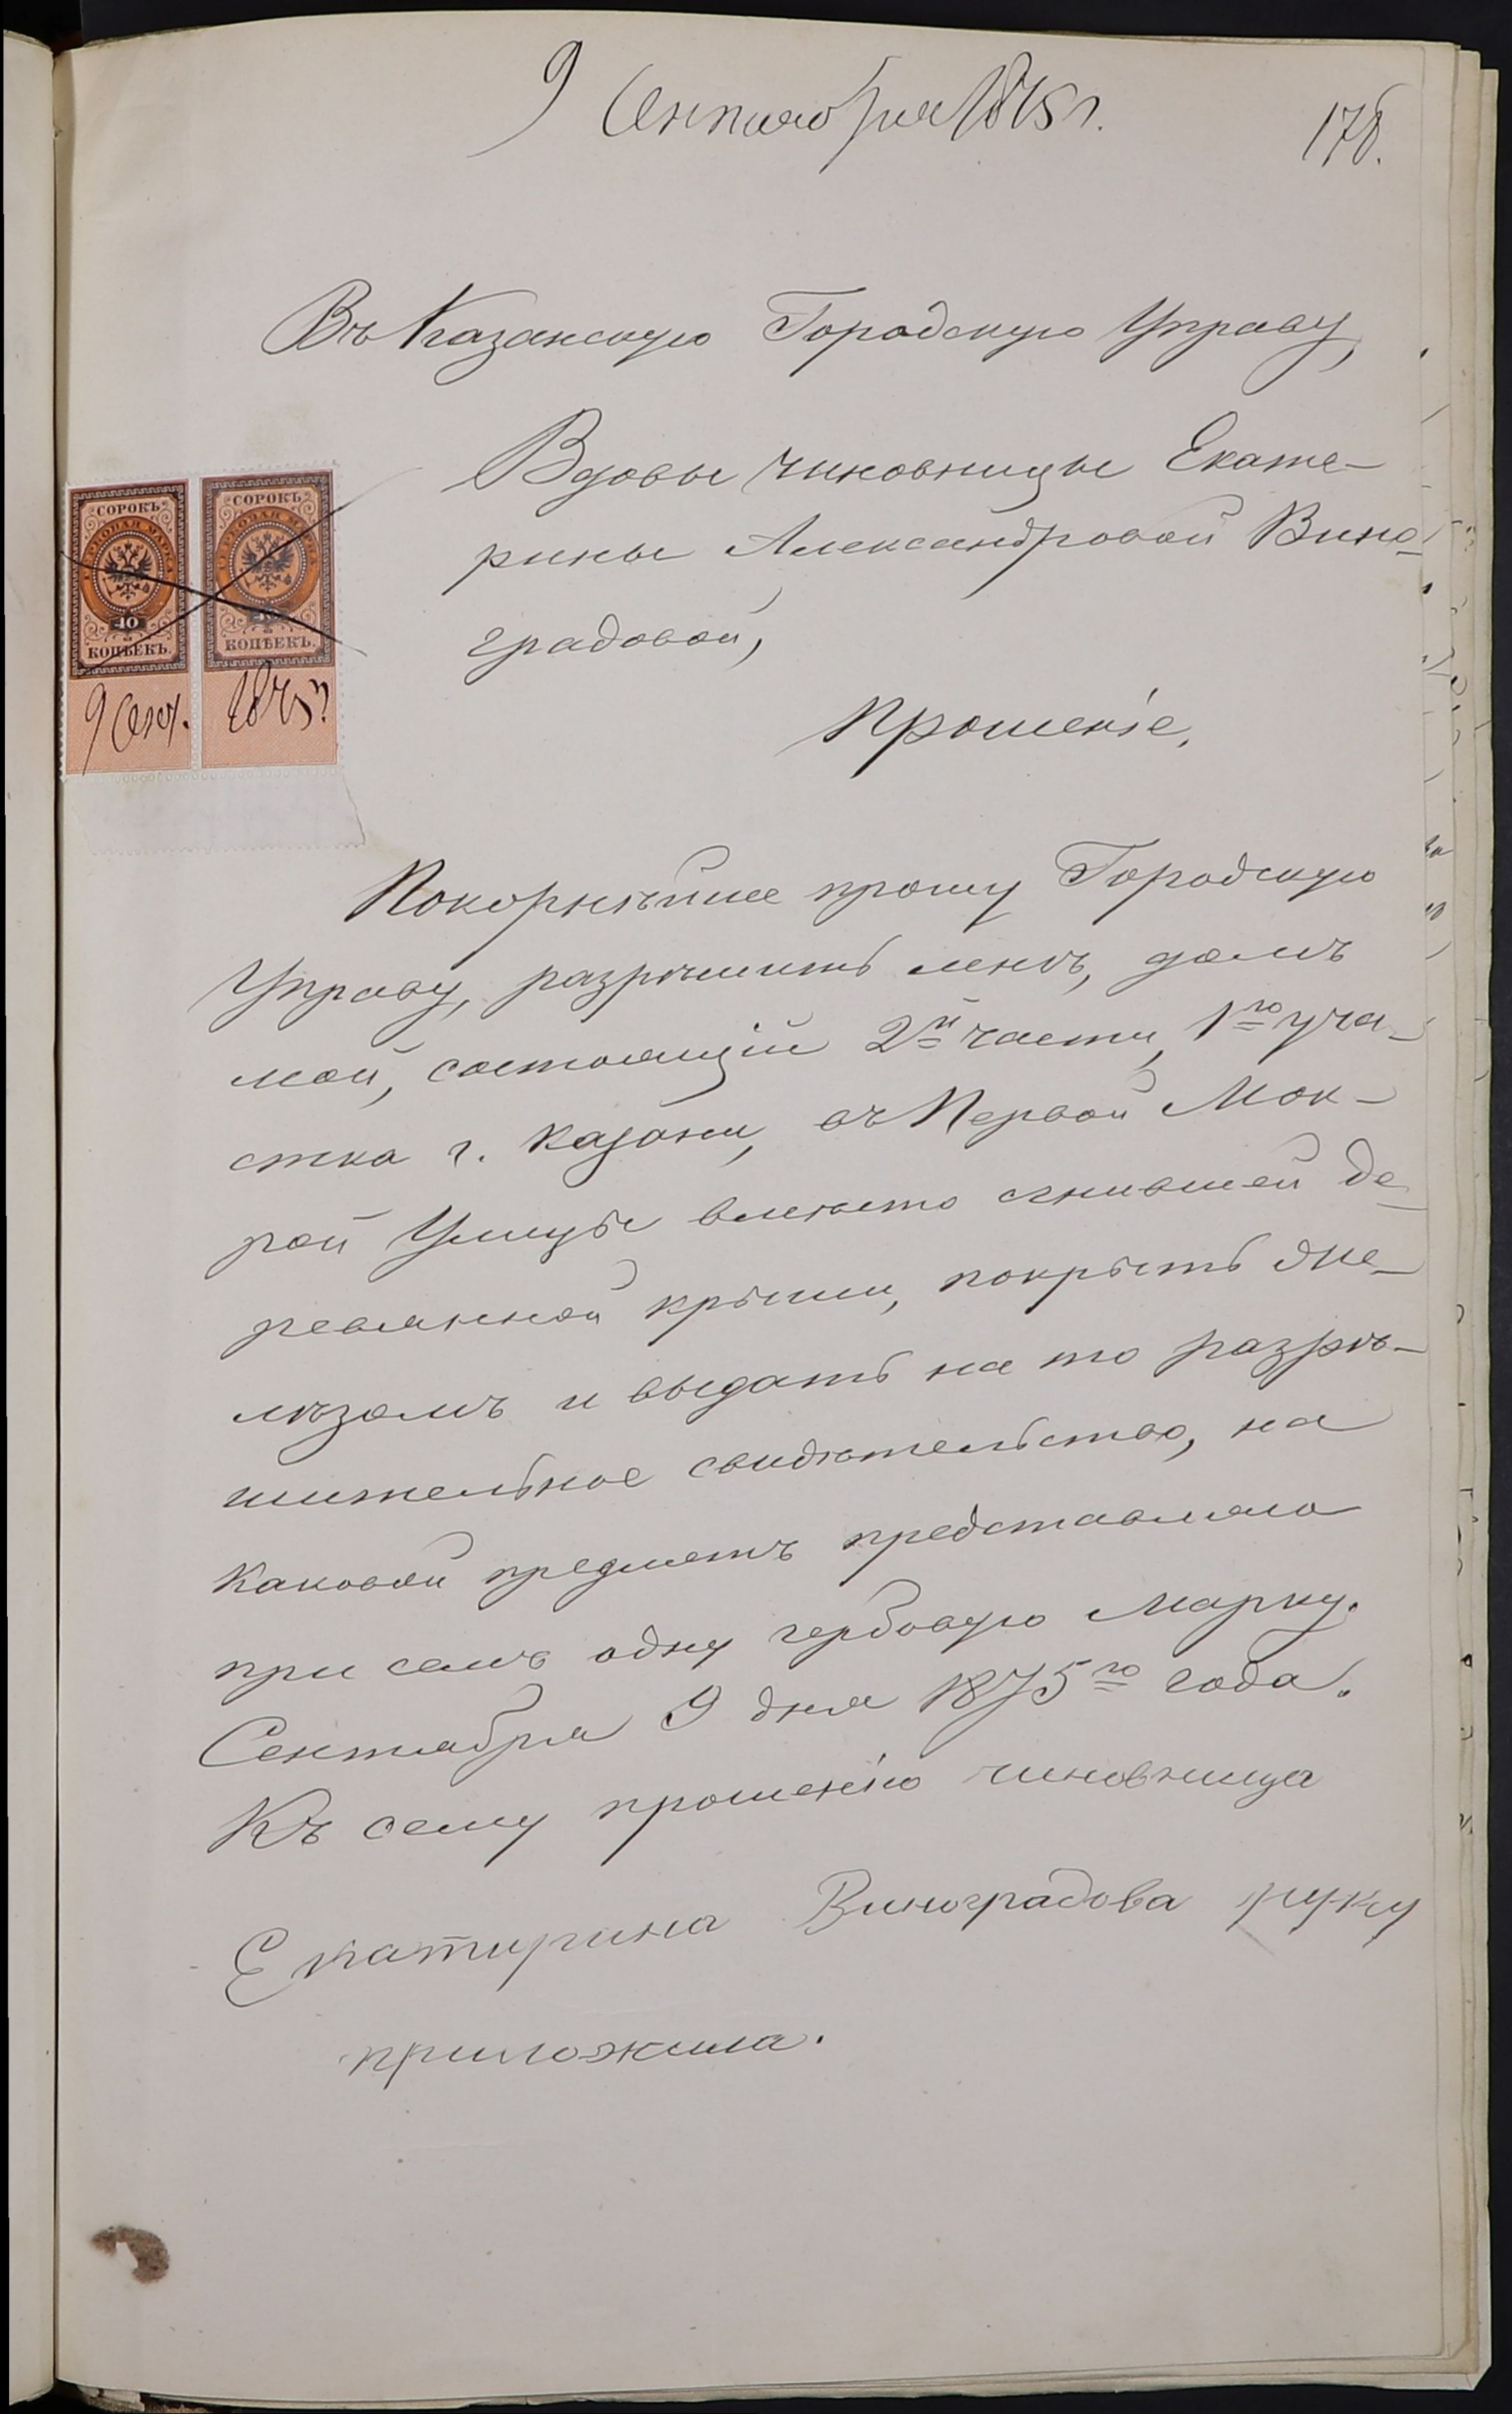 9 Сентября 1875 г.
178.
Въ Казанскую Городскую Управу,
Вдовы чиновницы Екате-
рины Александровой Вино-
градовой,
Прошеніе.
СОРОКЪ
ГЕРБОВАЯ МАРКА
40
КОПѢЕКЪ.
СОРОКЪ
ГЕРБОВАЯ МАРКА
40
КОПѢЕКЪ.
9 Сент. 1875 г.
Покорнѣйше прошу Городскую
Управу, разрѣшить мнѣ, домъ
мой, состоящій 2й части, 1го уча-
стка г. Казани, въ Первой Мок-
рой Улицѣ вмѣсто сгнившей де-
ревянной крыши, покрыть же-
лѣзомъ и выдать на то разрѣ-
шительное свидѣтельство, на
каковой предметъ представляю
при семъ одну гербовую марку.
Сентября 9 дня 1875го года.
Къ сему прошенію чиновница
Екатирина Виноградова руку
приложила.